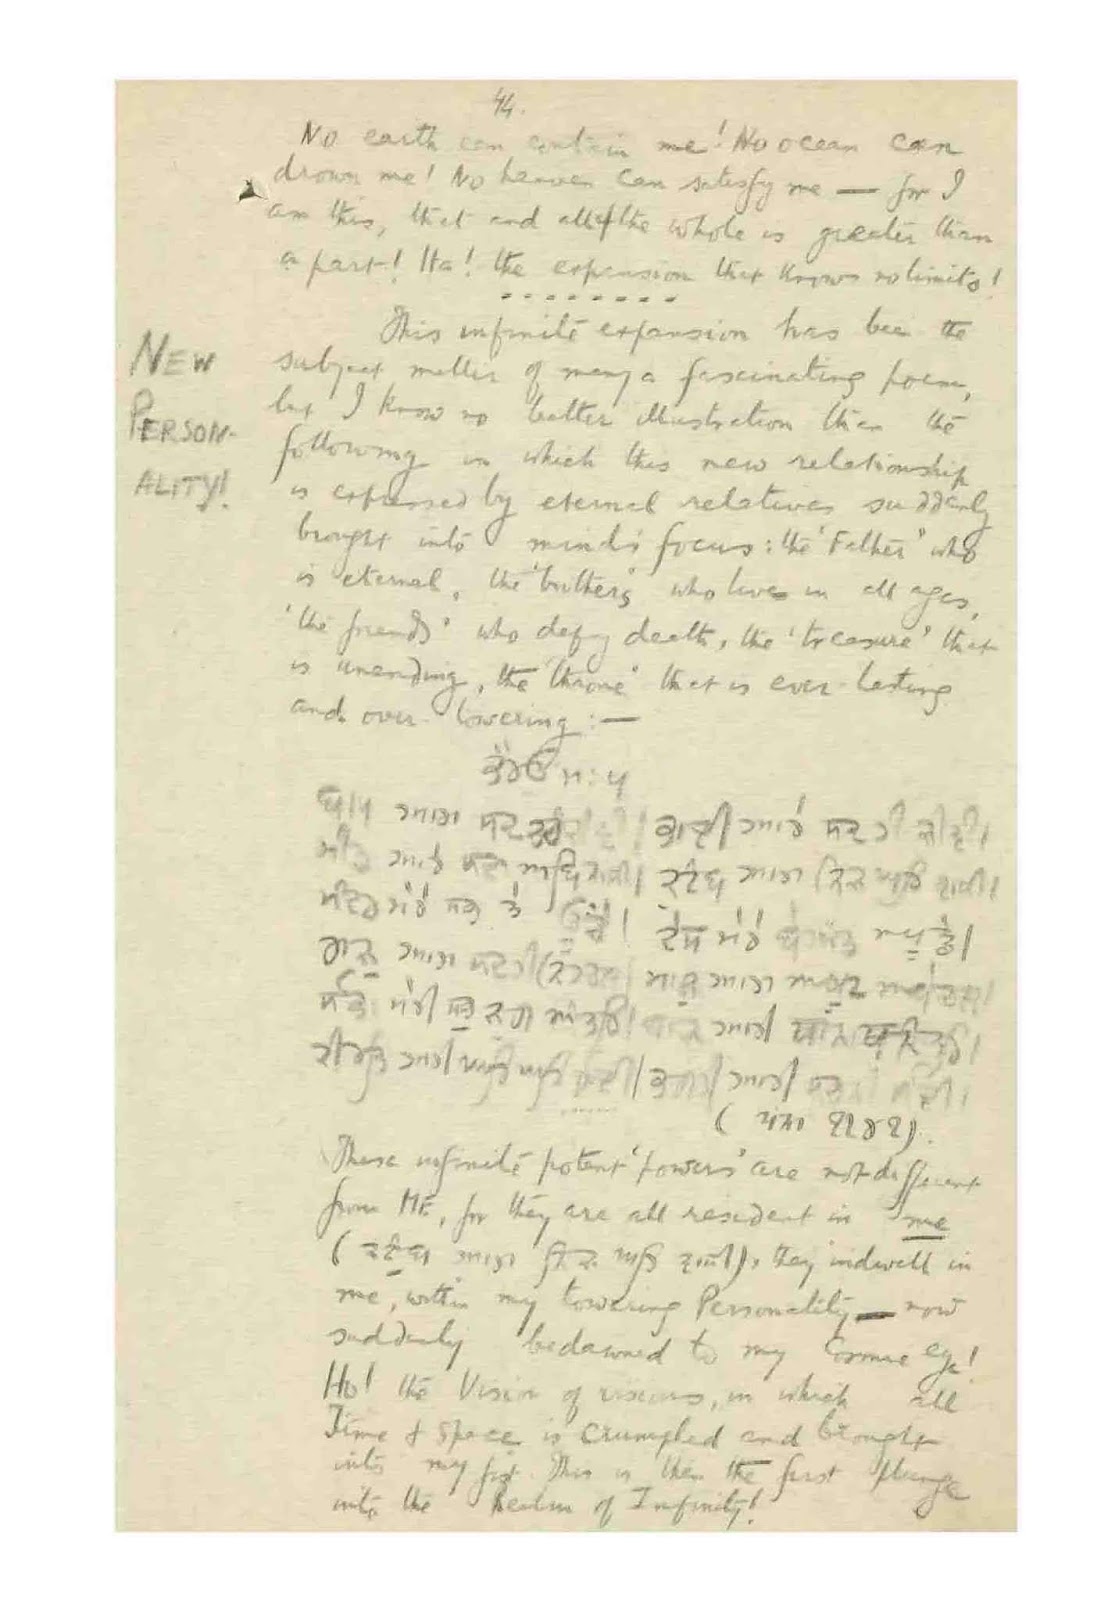 44.
No earth can contain me! No ocean can
drown me! No heaven can satisfy me — for I
am this, that and all & the whole is greater than
a part! Ha! the expansion that knows no limits!
This infinite expansion has been the
NEW
PERSON-
ALITY!
subject matter of many a fascinating poem,
but I know no better illustration than the
following in which this new relationship
is expressed by eternal relatives suddenly
brought into mind's focus: the 'Father' who
is eternal, the 'brothers' who lives in all ages,
'the friends' who defy death, the 'treasure' that
is unending, the 'throne' that is ever-lasting
and over-towering: —
ਭੈਰਉ ਮ: ੫
ਬਾਪ ਹਮਾਰਾ ਸਦ ਚਰੰਜੀਵੀ। ਭਾਈ ਹਮਾਰੇ ਸਦ ਹੀ ਜੀਵੀ।
ਮੀਤ ਹਮਾਰੇ ਸਦਾ ਅਬਿਨਾਸੀ। ਕੁਟੰਬ ਹਮਾਰਾ ਨਿਜ ਘਰਿ ਵਾਸੀ।
ਮੰਦਰ ਮੇਰੋ ਸਭ ਤੇ ਊਚਾ। ਦੇਸ ਮੇਰੋ ਬੇਅੰਤ ਅਪੂਛਾ।
ਰਾਜੁ ਹਮਾਰਾ ਸਦ ਹੀ ਨਿਹਚਲ। ਮਾਲੁ ਹਮਾਰਾ ਅਖੂਟੁ ਅਬੇਚਲ।
ਸੋਭਾ ਮੇਰੀ ਸਭ ਜੁਗ ਅੰਤਰਿ। ਬਾਜ ਹਮਾਰੀ ਥਾਨ ਥਨੰਤਰਿ।
ਕੀਰਤਿ ਹਮਰੀ ਘਰਿ ਘਰਿ ਹੋਈ। ਭਗਤਿ ਹਮਾਰੀ ਸਭਨੀ ਲੋਈ।
(ਪੰਨਾ ੧੧੪੧).
These infinite potent 'powers' are not different
from ME, for they are all resident in me
(ਕੁਟੰਬ ਹਮਾਰਾ ਨਿਜ ਘਰਿ ਵਾਸੀ), they indwell in
me, within my towering Personality — now
suddenly bedawned to my Cosmic eye!
Ho! the Vision of visions, in which all
Time & Space is crumpled and brought
into my fist. This is then the first plunge
into the Realm of Infinity!